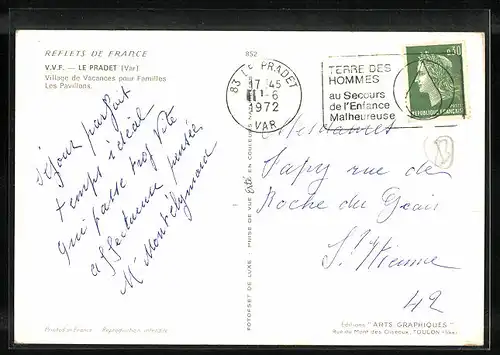 REFLETS DE FRANCE
V.V.F. - LE PRADET (Var)
Village de Vacances pour Familles
Les Pavillons.
852
83 LE PRADET
17 H 45
1-6
1972
VAR
TERRE DES
HOMMES
au Secours
de l'Enfance
Malheureuse
0,30
REPUBLIQUE FRANÇAISE
Séjour parfait
temps idéal
qui passe trop vite
affectueuses pensées
Mesdames
rue de
Roche du Geai
St Etienne
42
FOTOFSET DE LUXE - PRISE DE VUE EN COULEURS
Printed in France Reproduction interdite
Editions "ARTS GRAPHIQUES"
Rue du Mont des Oiseaux, TOULON (Var)